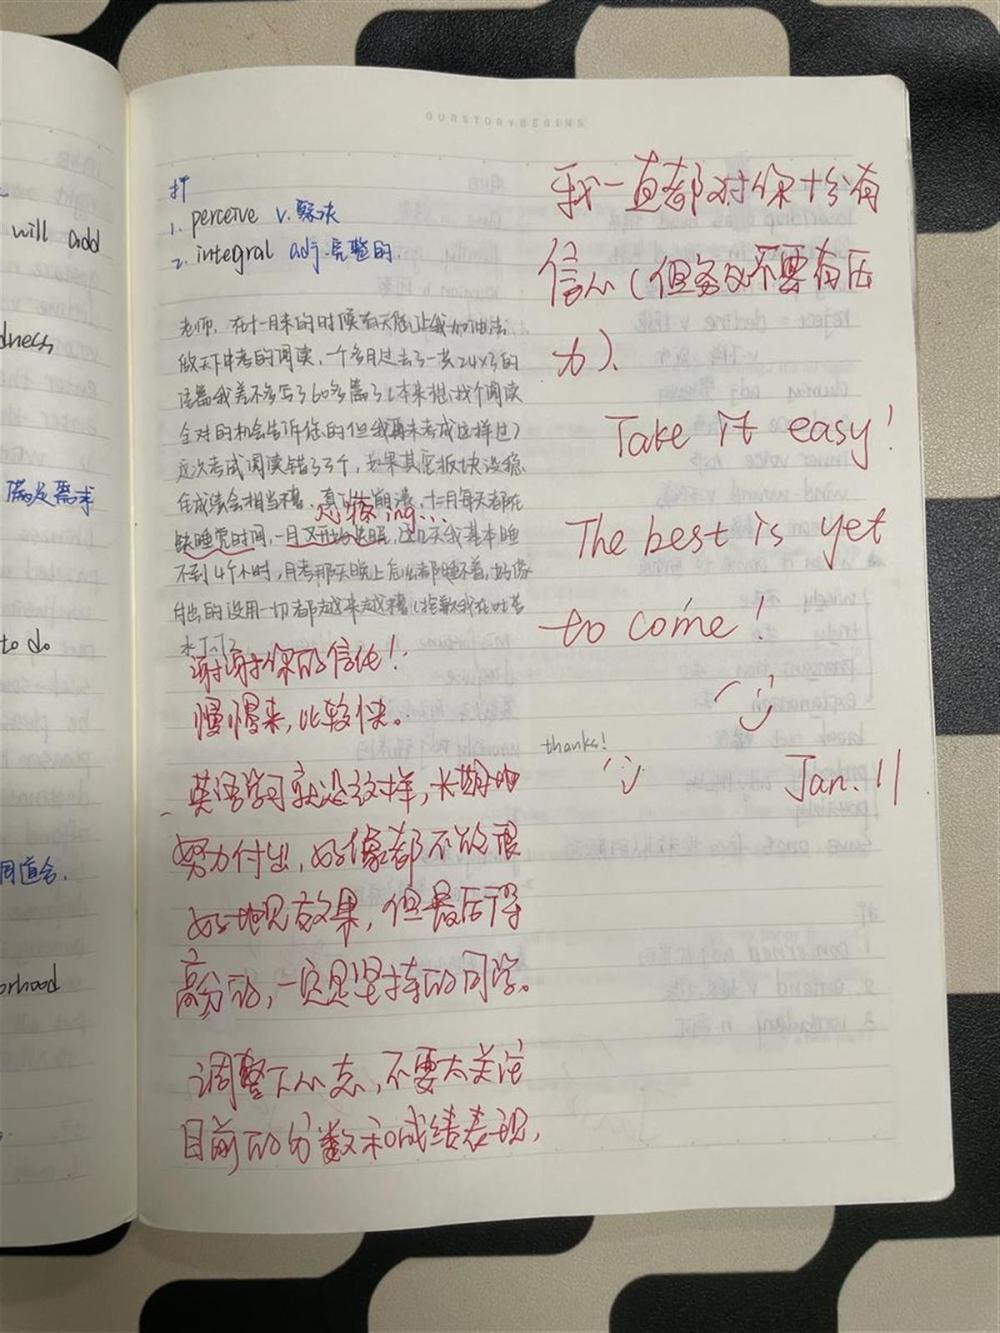 OURSTORYBEGINS
will add
dness
需求
to do
同道合.
orhood
打
1. perceive v.察觉
2. integral adj.完整的.
老师，在十一月末的时候有天您让我加油去
做天下中考的阅读，一个多月过去了一共24×3的
语篇我差不多写了60多篇了（本来想找个阅读
全对的机会告诉您的但我再未考成这样过）
这次考试阅读错了3个，如果其它板块没稳
住成绩会相当糟，真的崩溃，十二月每天都在
心疼ing...
缺睡觉时间，一月又开始失眠，这几天我基本睡
不到4个小时，月考那天晚上后也都睡不着，好像
自己的没用一切都越来越糟（抱歉我在吐苦
水了
谢谢你的信任！
慢慢来，比较快。
英语学习就是这样，长期的
努力付出，好像都不能很
好地见效果，但最后得
高分的，一定是坚持的同学。
调整下心态，不要太关注
目前的分数和成绩表现，
我一直都对你十分有
信心（但务必不要有压
力）.
Take it easy!
The best is yet
to come!
thanks!
Jan. 11